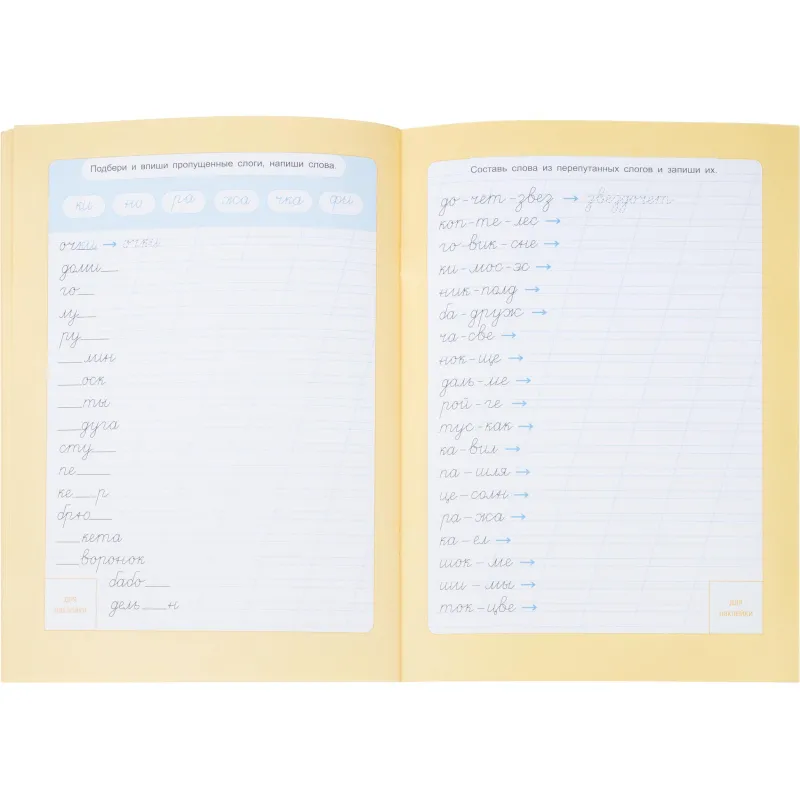 Подбери и впиши пропущенные слоги, напиши слова.
ки но ра жа чка фи
очки → очки
доми__
го__
лу__
ру__
__мин
__оск
__ты
__дуга
сту__
пе__
ке__р
брю__
__кета
__воронок
бабо__
дель__н
для наклейки
Составь слова из перепутанных слогов и запиши их.
до-чет-звез → звездочет
коп-те-лес →
го-вик-сне →
ки-мос-эс →
ник-полд →
ба-друж →
ча-све →
нок-ще →
даль-ме →
рой-ге →
тус-как →
ка-вил →
па-шля →
це-солн →
ра-жа →
ка-ел →
шок-ме →
ши-мы →
ток-цве →
для наклейки